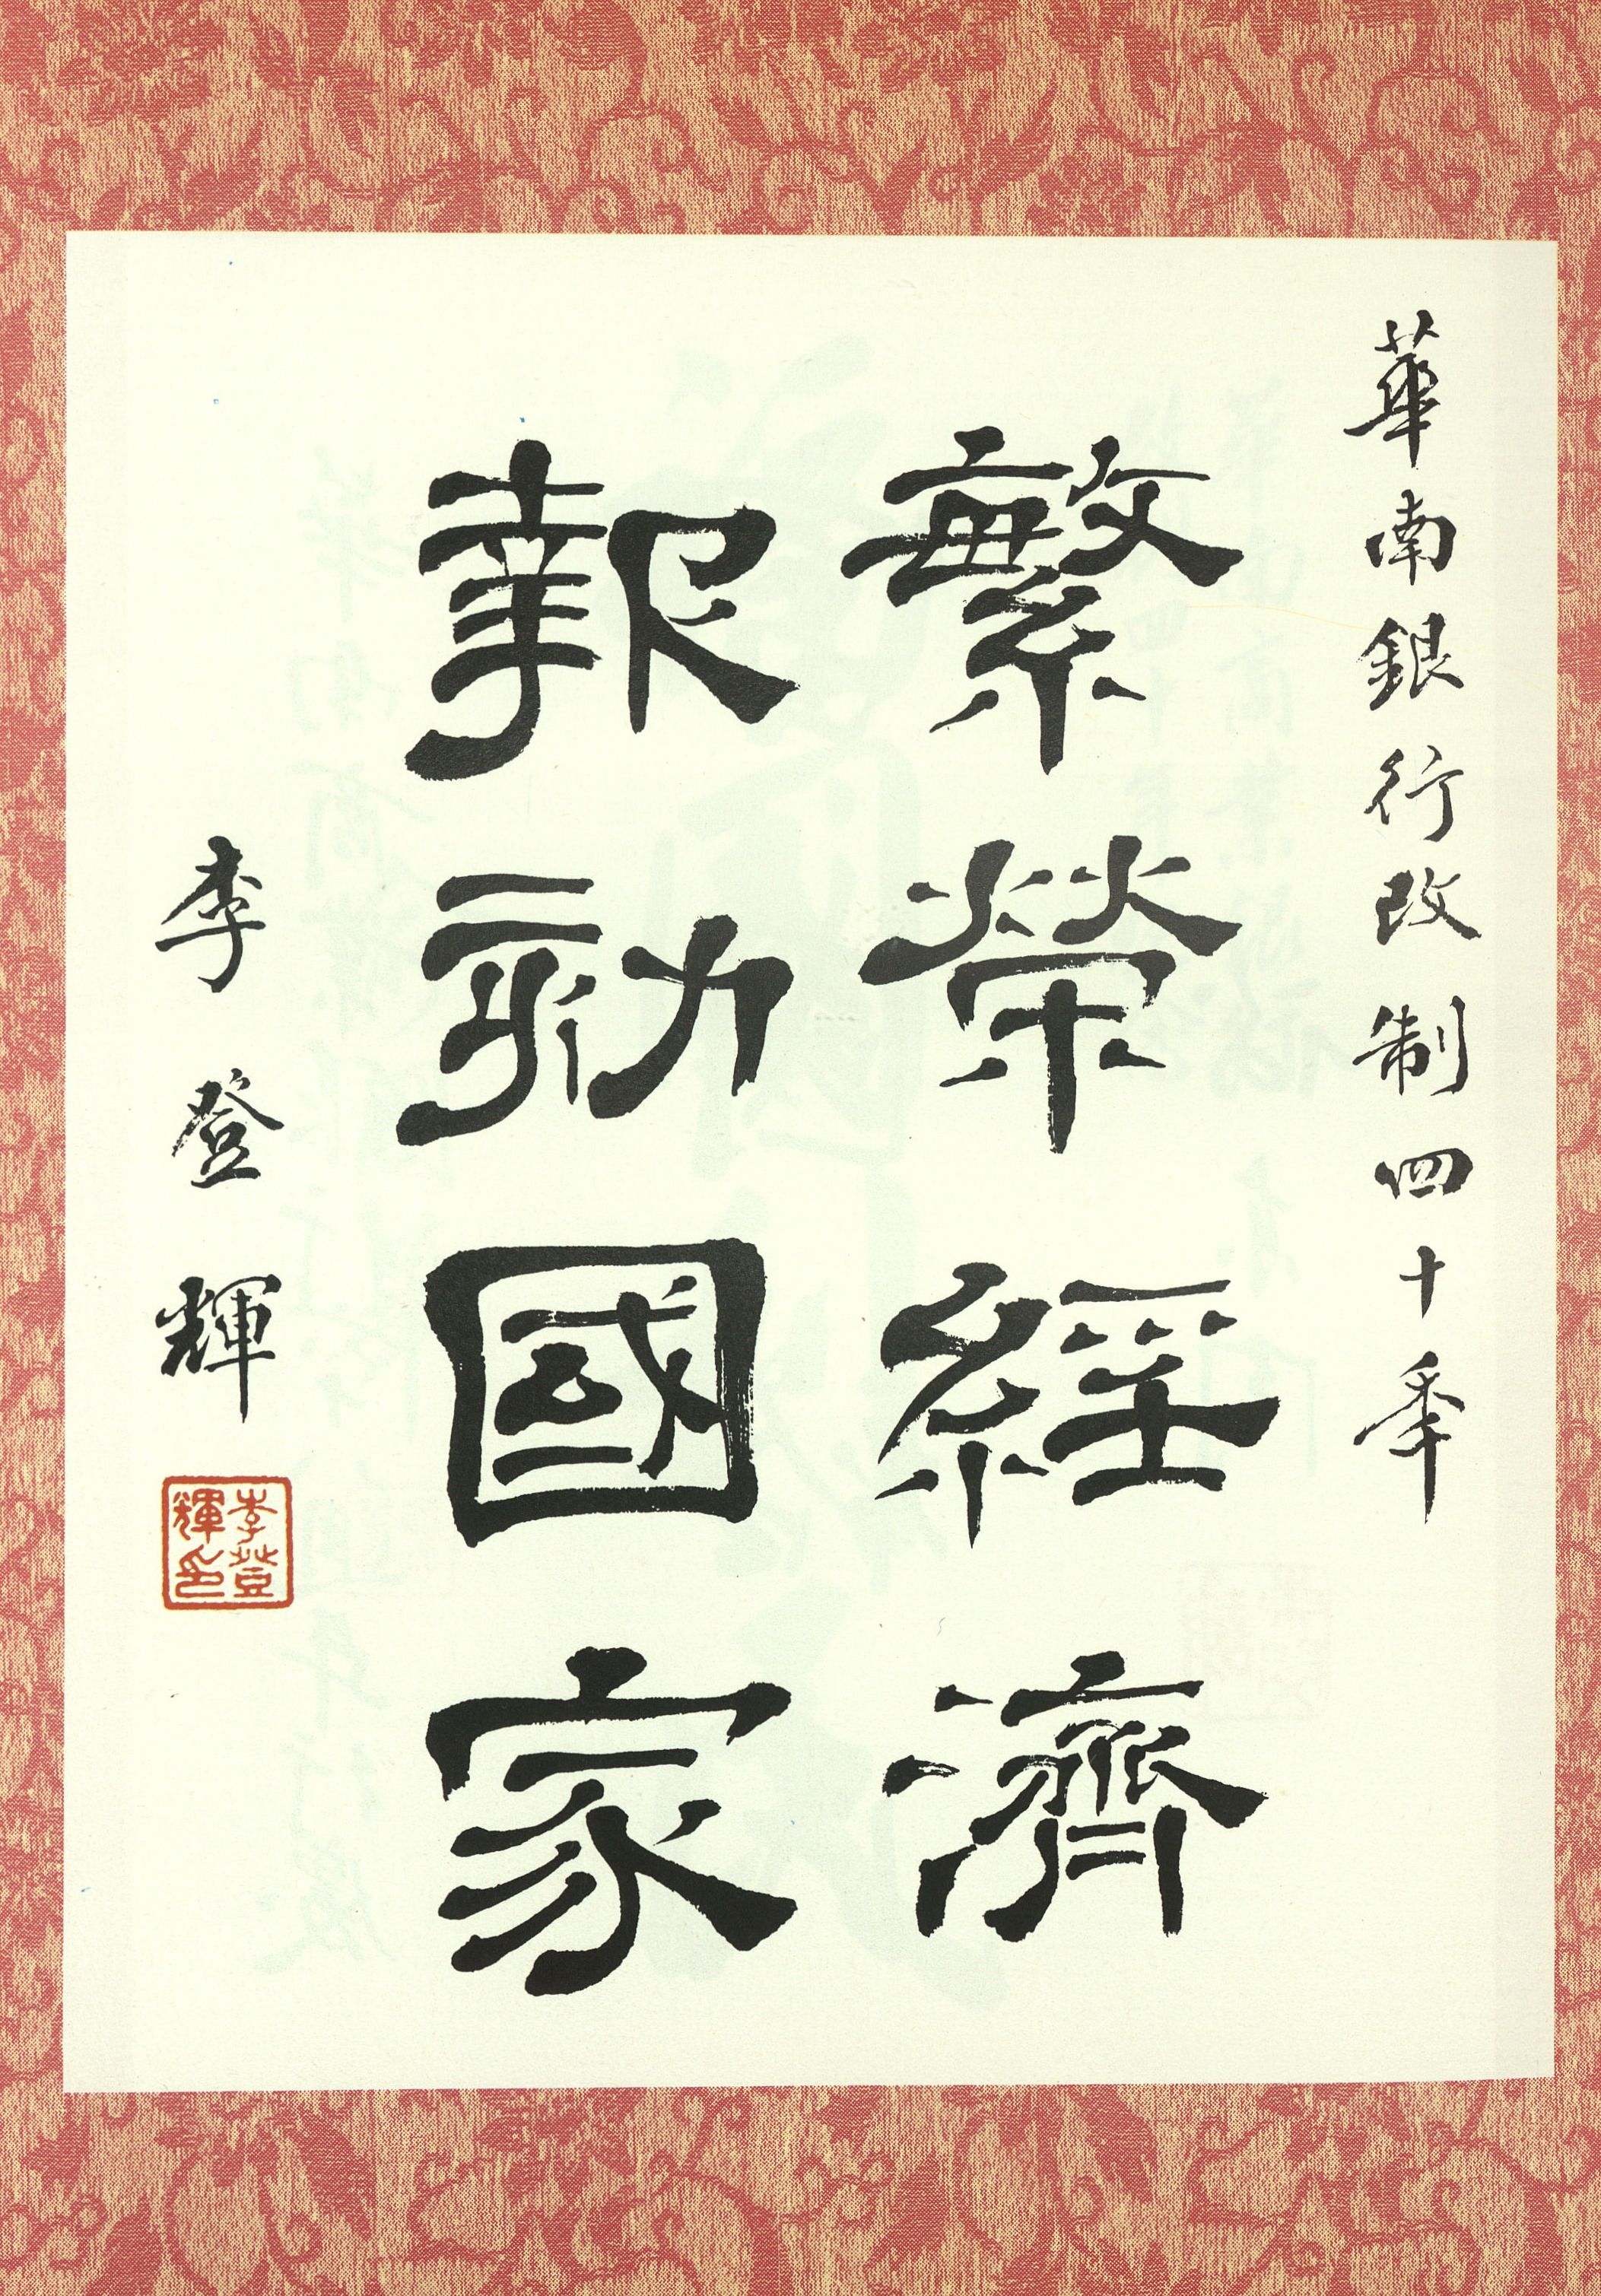 華南銀行改制四十秊
繁榮經濟
報効國家
李登輝
李登
輝印